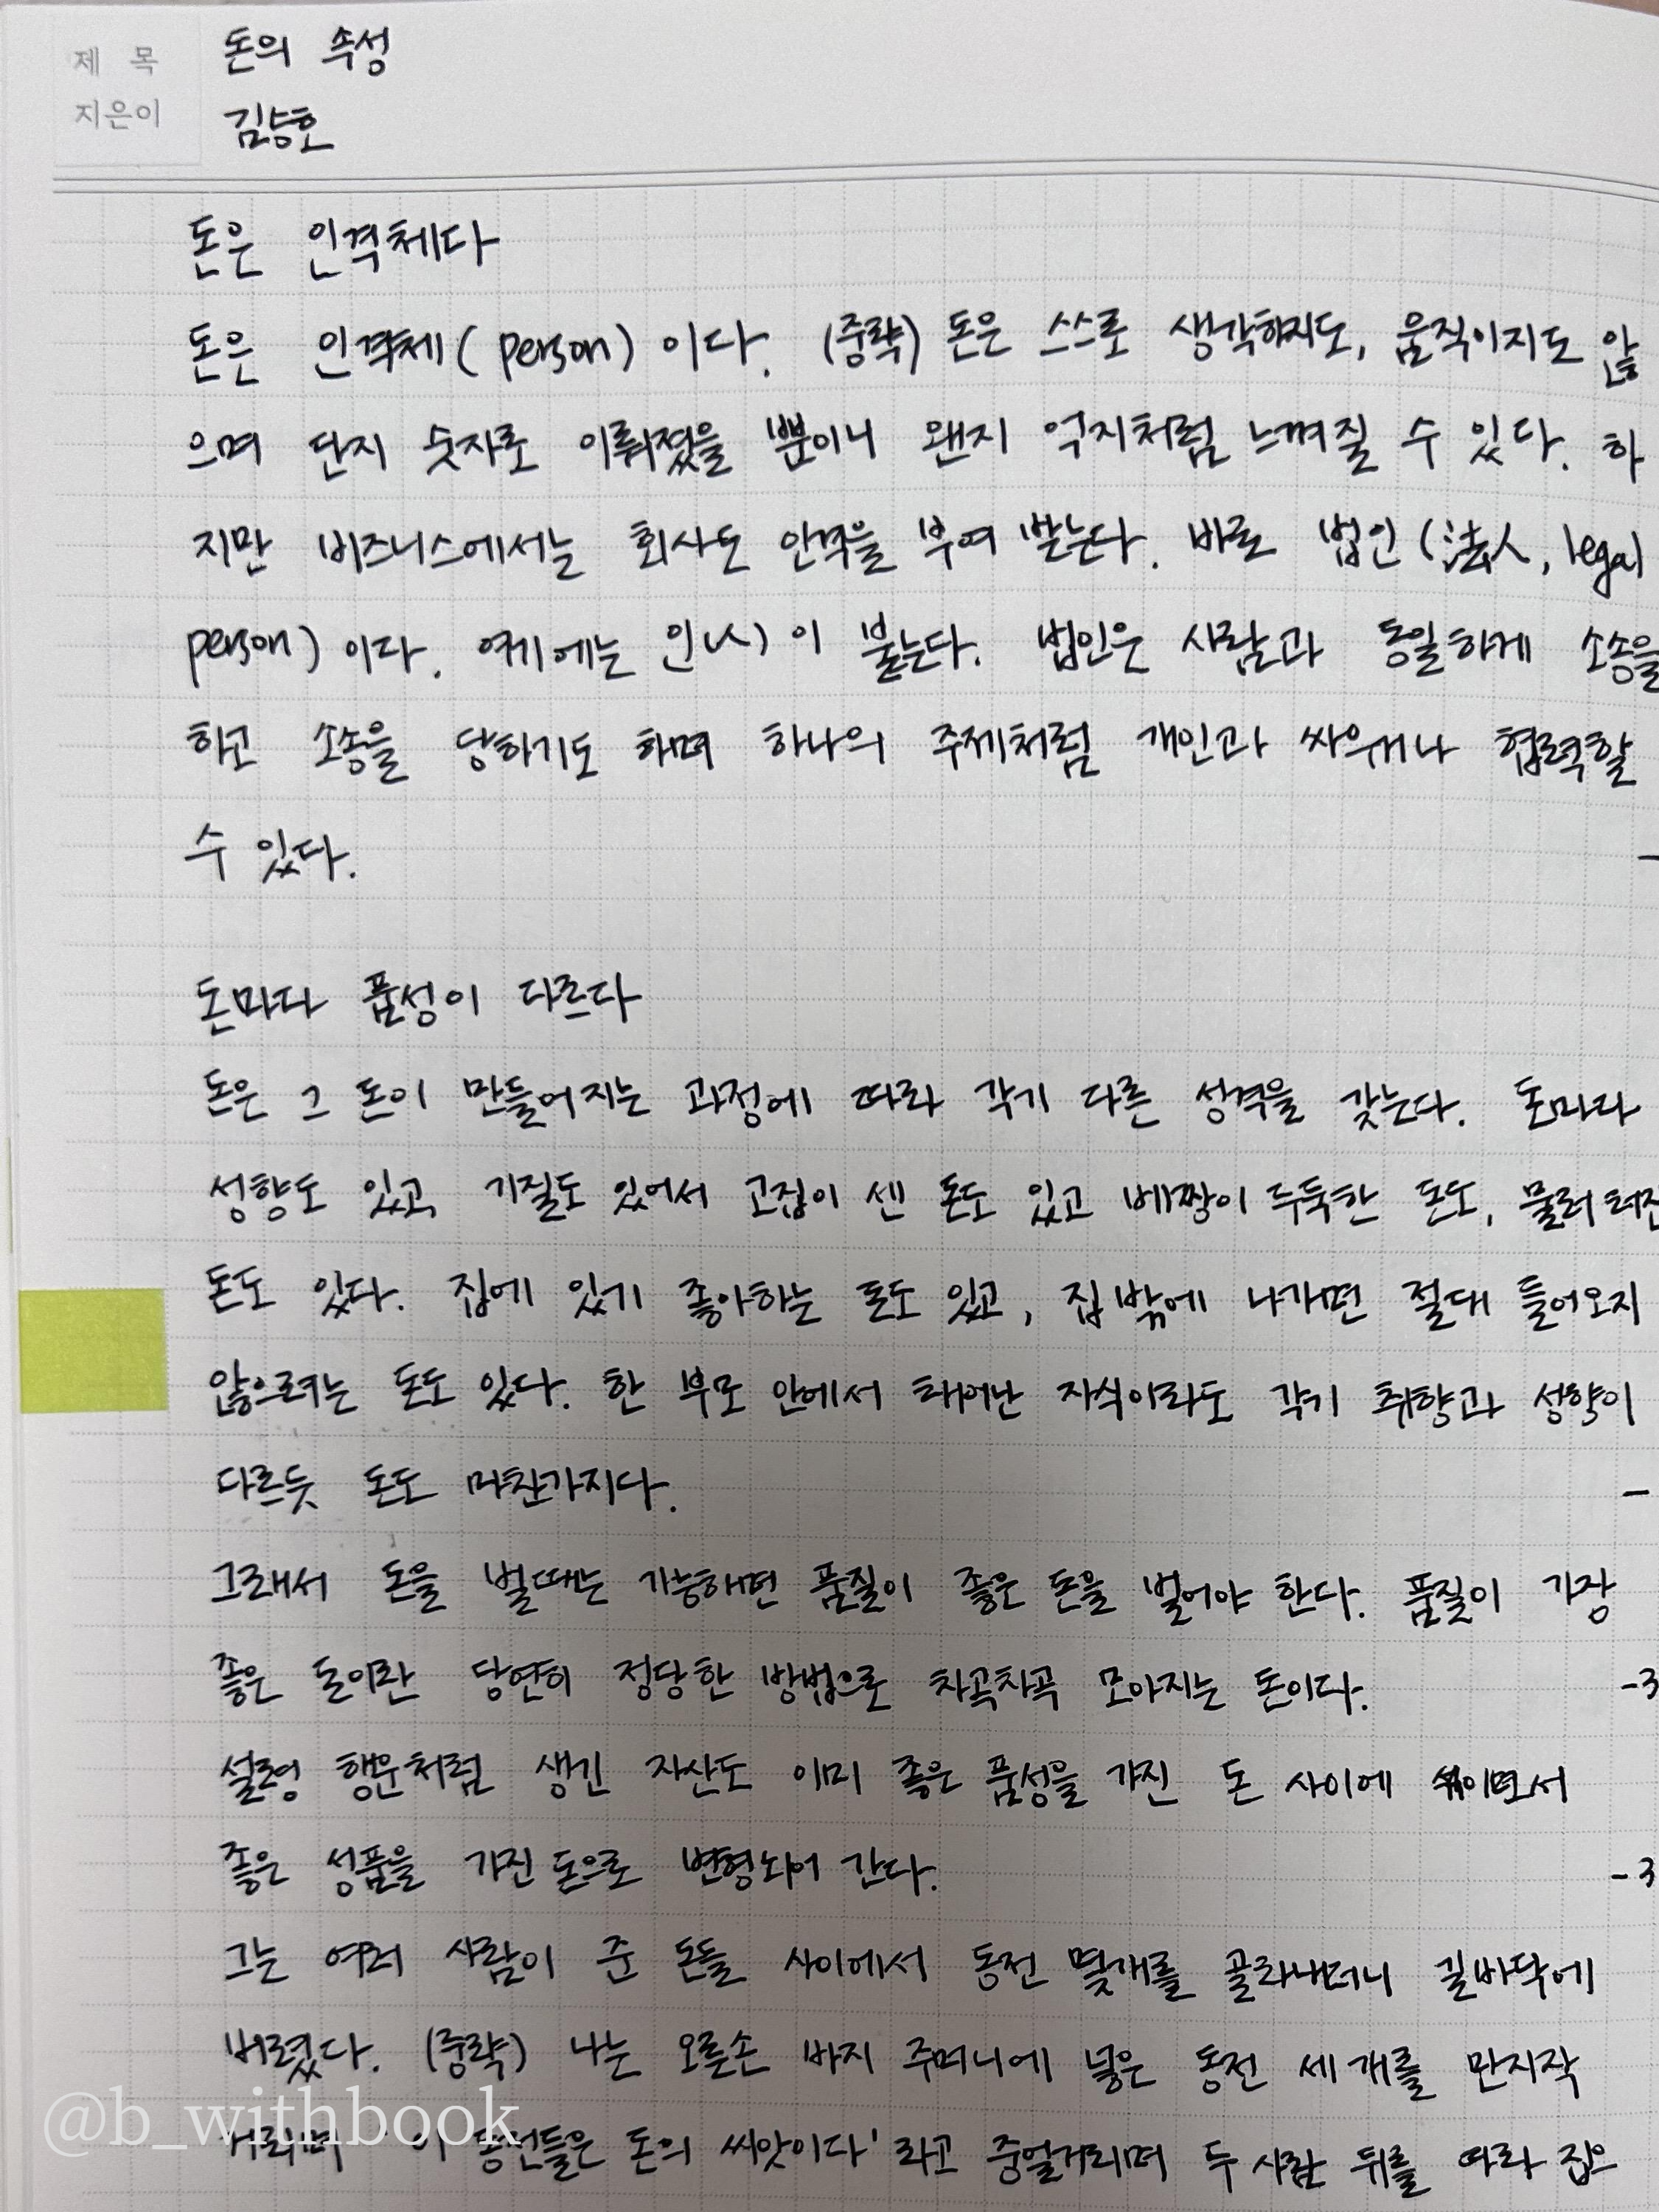 제 목 돈의 속성
지은이 김승호
돈은 인격체다
돈은 인격체(person)이다. (중략) 돈은 스스로 생각하지도, 움직이지도 않
으며 단지 숫자로 이뤄졌을 뿐이니 왠지 억지처럼 느껴질 수 있다. 하
지만 비즈니스에서는 회사도 인격을 부여 받는다. 바로 법인(法人, legal
person)이다. 여기에는 인(人)이 붙는다. 법인은 사람과 동일하게 소송을
하고 소송을 당하기도 하며 하나의 주체처럼 개인과 싸우거나 협력할
수 있다. -
돈마다 품성이 다르다
돈은 그 돈이 만들어지는 과정에 따라 각기 다른 성격을 갖는다. 돈마다
성향도 있고 기질도 있어서 고집이 센 돈도 있고 배짱이 두둑한 돈도, 물러 터진
돈도 있다. 집에 있기 좋아하는 돈도 있고, 집 밖에 나가면 절대 들어오지
않으려는 돈도 있다. 한 부모 안에서 태어난 자식이라도 각기 취향과 성향이
다르듯 돈도 마찬가지다. -
그래서 돈을 벌때는 가능하면 품질이 좋은 돈을 벌어야 한다. 품질이 가장
좋은 돈이란 당연히 정당한 방법으로 차곡차곡 모아지는 돈이다. -3
설령 행운처럼 생긴 자산도 이미 좋은 품성을 가진 돈 사이에 섞이면서
좋은 성품을 가진 돈으로 변형되어 간다. -3
그는 여러 사람이 준 돈들 사이에서 동전 몇개를 골라내더니 길바닥에
버렸다. (중략) 나는 오른손 바지 주머니에 넣은 동전 세 개를 만지작
거리며 '이 동전들은 돈의 씨앗이다'라고 중얼거리며 두 사람 뒤를 따라 집으
@b_withbook